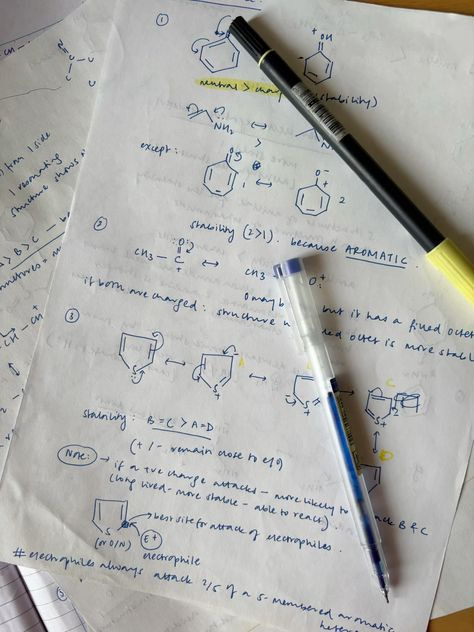 ①
+ OH
neutral > char (stability)
NH₂ ↔
>
except :
O
1 ↔ O⁻ + 2
stability (2>1). because AROMATIC.
②
:O:
CH₃ — C + ↔ CH₃ O⁺
O may b but it has a filled octet
if both are charged : structure w led octet is more stabl
③
A C
S S+ S+ S+
D
stability : B = C > A = D
(+ / − remain close to e/o)
Note: → if a +ve charge attacks – more likely to ack B & C
(long lived – more stable – able to react)
S → best site for attack of electrophiles.
(or O/N) E+
electrophile
# electrophiles always attack 2/5 of a 5-membered aromatic
CH –
C
from 1 side
1 resonating
structure shows
> B > C – b
CH – CH